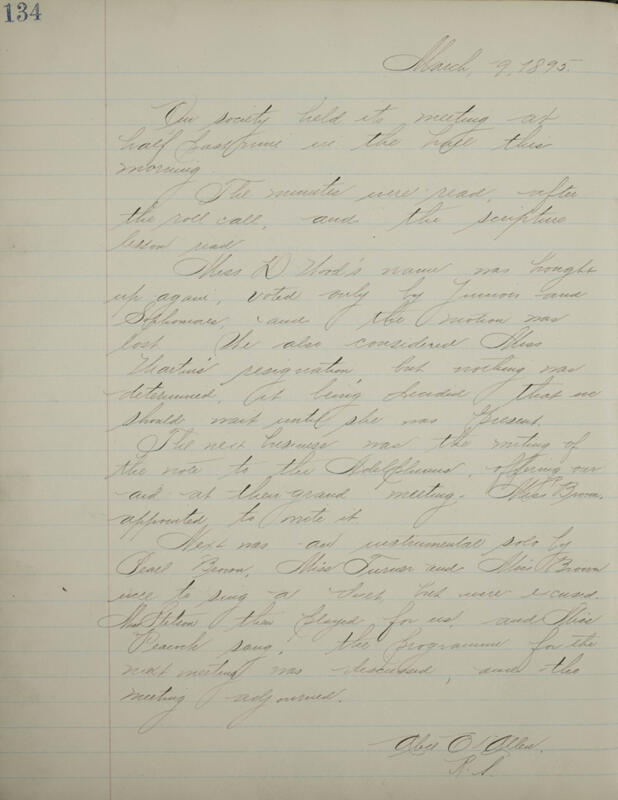 134
March, 9, 1895.
Our society held its meeting at
half past nine in the hall this
morning.
The minutes were read, after
the roll call, and the scripture
lesson read
Miss D Wood's name was brought
up again, voted only by Juniors and
Sophomores, and the motion was
lost We also considered Miss
Martin's resignation but nothing was
determined, it being decided that we
should wait until she was present.
The next business was the writing of
the note to the Adelphians, offering our
aid at their grand meeting. Miss Brown,
appointed to write it.
Next was an instrumental solo by
Pearl Brown, Miss Turner and Miss Brown
were to sing a duet, but were excused.
Miss then played for us, and Miss
Peacock sang, the programme for the
next meeting was discussed, and the
meeting adjourned.
Allen.
R. S.